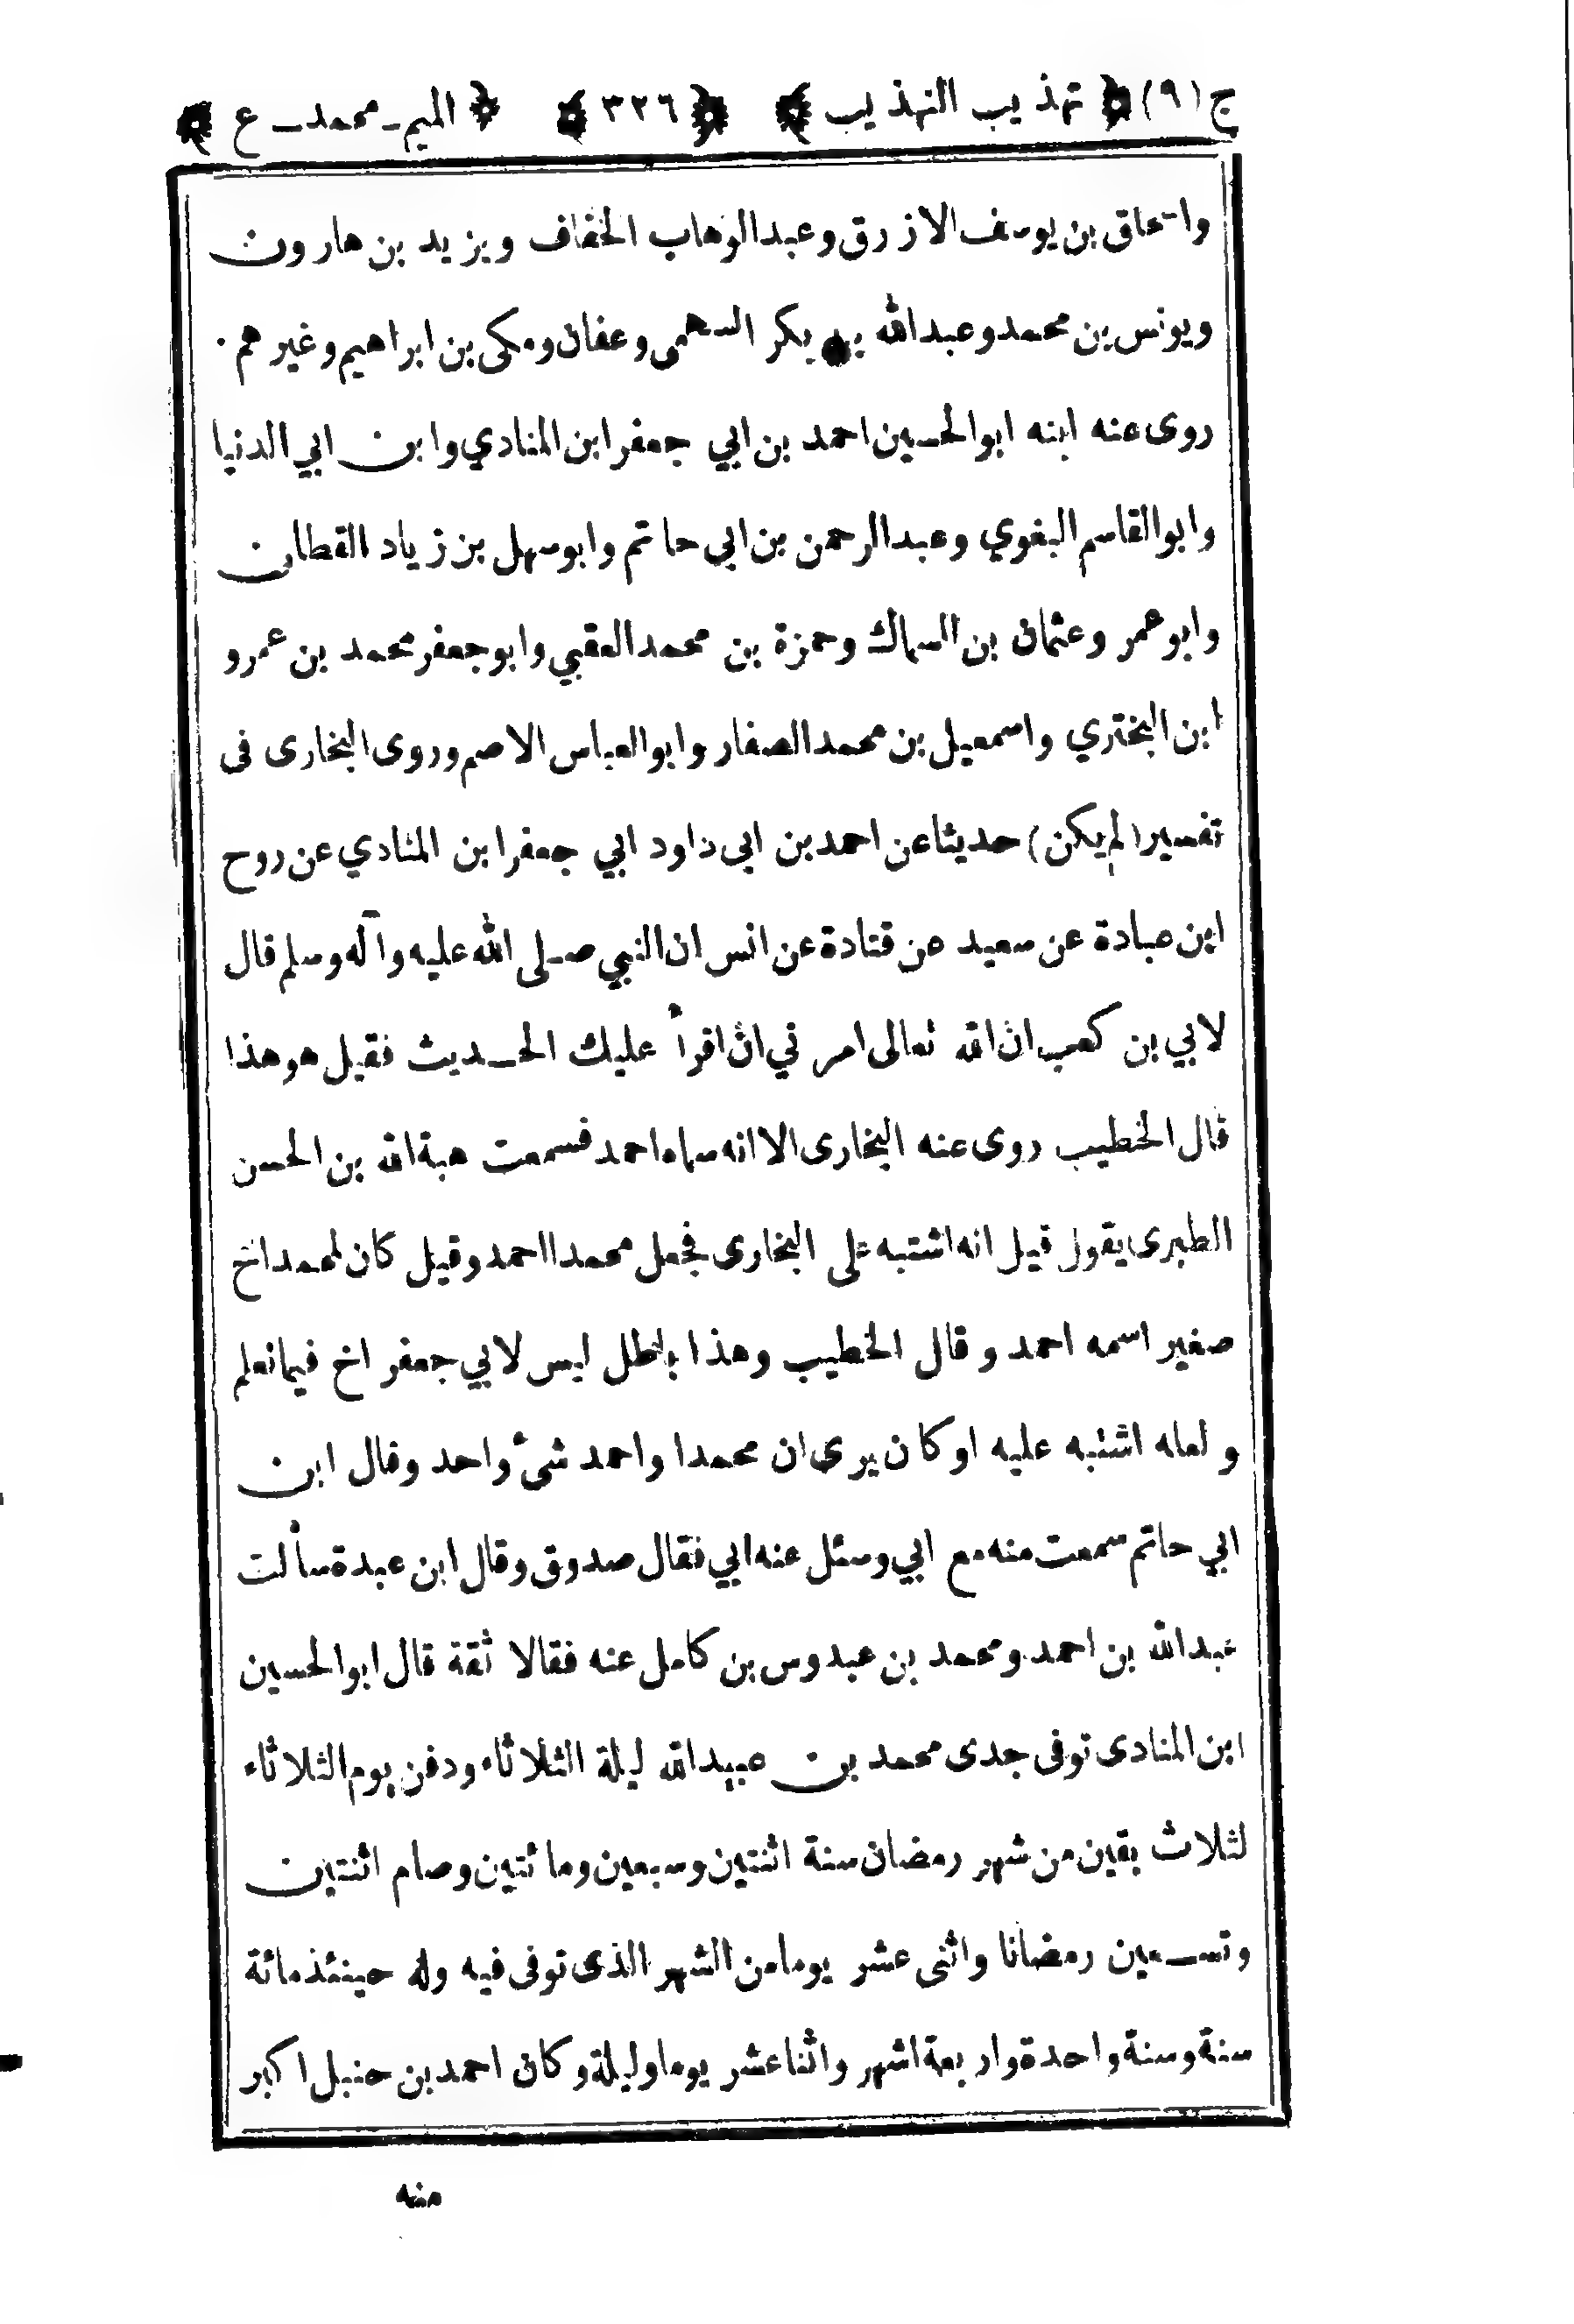 ج (٩) ﴿ تهذيب التهذيب ﴾ ﴿ ٣٢٦ ﴾ ﴿ الميم ـ محمد ـ ع ﴾
واسحاق بن يوسف الازرق وعبدالوهاب الخفاف ويزيد بن هارون
ويونس بن محمد وعبدالله بن بكر السهمى وعفان ومكى بن ابراهيم وغيرهم ۰
روى عنه ابنه ابوالحسين احمد بن ابي جعفر ابن المنادي وابن ابي الدنيا
وابوالقاسم البغوي وعبدالرحمن بن ابى حاتم وابوسهل بن زياد القطان
وابوعمر وعثمان بن السماك وحمزة بن محمد العقبي وابوجعفر محمد بن عمرو
ابن البختري واسمعيل بن محمد الصفار وابوالعباس الاصم وروى البخارى فى
تفسير (لم يكن) حديثا عن احمد بن ابى داود ابي جعفر ابن المنادي عن روح
ابن عبادة عن سعيد عن قتادة عن انس ان النبي صلى الله عليه وآله وسلم قال
لابي بن كعب ان الله تعالى امرني ان اقرأ عليك الحديث فقيل هو هذا
قال الخطيب روى عنه البخارى الا انه سماه احمد فسمعت هبة الله بن الحسن
الطبرى يقول قيل انه اشتبه على البخارى فجعل محمدا احمد وقيل كان لمحمد اخ
صغير اسمه احمد وقال الخطيب وهذا باطل ليس لابي جعفر اخ فيما نعلم
ولعله اشتبه عليه او كان يرى ان محمدا واحمد شئ واحد وقال ابن
ابي حاتم سمعت منه مع ابي وسئل عنه ابي فقال صدوق وقال ابن عبدة سألت
عبدالله بن احمد ومحمد بن عبدوس بن كامل عنه فقالا ثقة قال ابوالحسين
ابن المنادى توفى جدى محمد بن عبيدالله ليلة الثلاثاء ودفن يوم الثلاثاء
لثلاث بقين من شهر رمضان سنة اثنتين وسبعين ومائتين وصام اثنتين
وتسعين رمضانا واثنى عشر يوما من الشهر الذى توفى فيه وله حينئذ مائة
سنة وسنة واحدة واربعة اشهر واثنا عشر يوما وليلة وكان احمد بن حنبل اكبر
منه